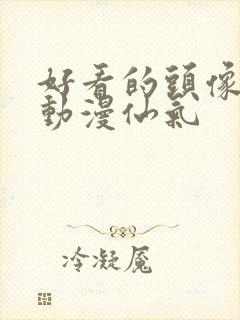 好看的頭像
動漫仙氣
冷凝魘